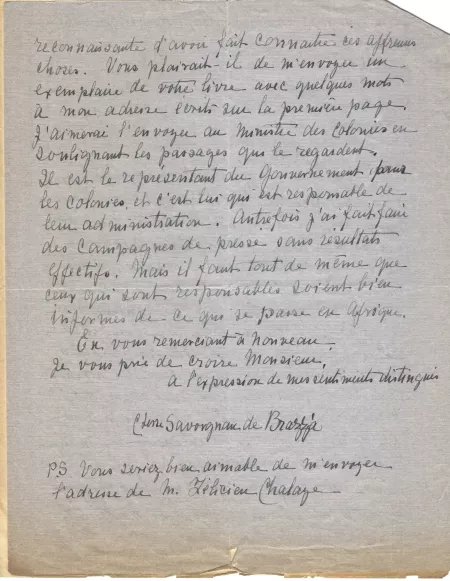 reconnaissante d'avoir fait connaitre ces affreuses
choses. Vous plairait-il de m'envoyer un
exemplaire de votre livre avec quelques mots
à mon adresse ecrits sur la premiere page.
J'aimerai l'envoyer au Ministre des Colonies en
soulignant les passages qui le regardent.
Il est le representant du Gouvernement, pour
les colonies, et c'est lui qui est responsable de
leur administration. Autrefois j'ai fait faire
des campagnes de presse sans résultats
effectifs. Mais il faut tout de même que
ceux qui sont responsables soient bien
informés de ce qui se passe en Afrique.
En vous remerciant à nouveau,
Je vous prie de croire Monsieur,
à l'expression de mes sentiments distingués
Savorgnan de Brazza
PS Vous seriez bien aimable de m'envoyer
l'adresse de M. Félicien Challaye